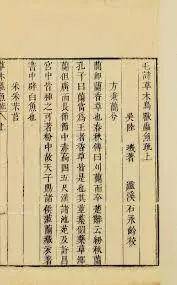 毛詩草木鳥獸蟲魚疏上
吳 陸 溪石永齡校
方秉蕑兮
蕑即蘭香草也春秋傳曰刈蘭而卒楚辭云紉秋蘭
孔子曰蘭當爲王者香草皆是也其莖葉似藥草澤
蘭但廣而長節節中赤高四五尺漢諸池苑及許昌
宮中皆種之可著粉中故天子賜諸侯蘭藏衣著
書中辟白魚也
采采芣苢